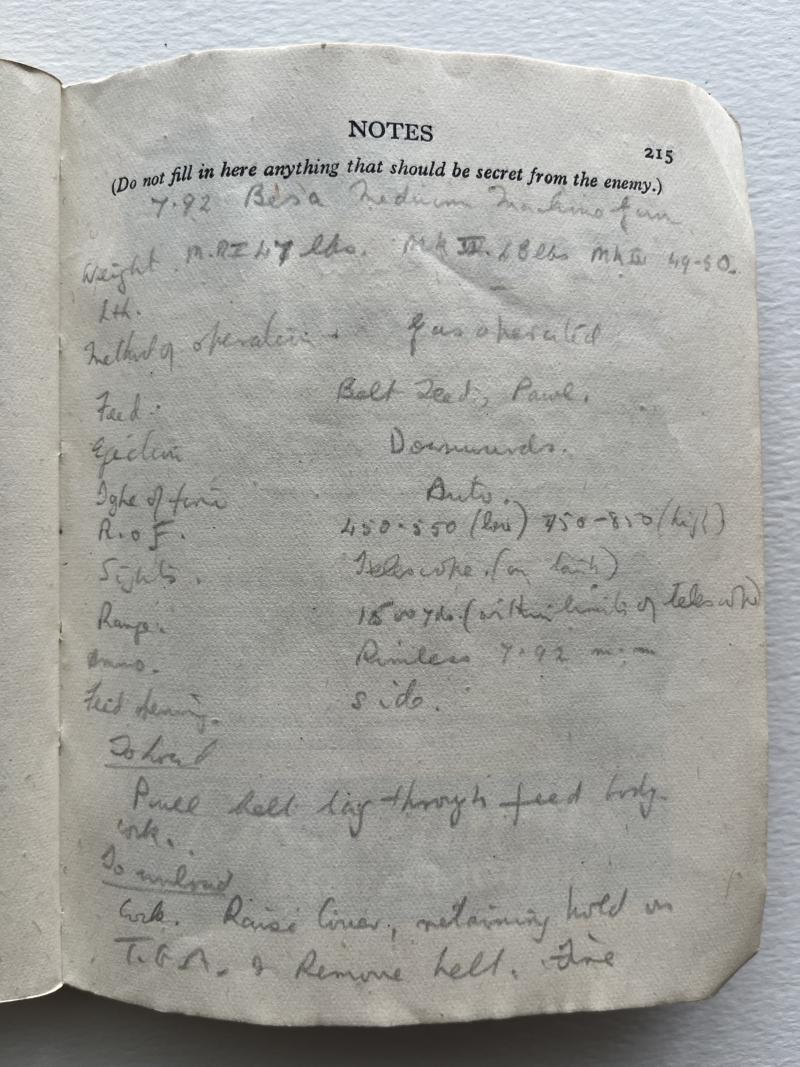 NOTES
215
(Do not fill in here anything that should be secret from the enemy.)
7.92 Besa Medium Machine Gun
Weight. M.K I 47 lbs. MK II. 48 lbs MK III 49-50.
Lth.
Method of operation. Gas operated
Feed. Belt Feed, Pawl.
Ejection Downwards.
of fire Auto.
R.o.F. 450-550 (low) 750-850 (high)
Sights. Telescope. (on tank)
Range. 1500 yds. (within limits of telescope)
Ammo. Rimless 7.92 m.m
Feed opening. side.
To load
Pull belt tag through feed body.
Cock.
To unload
Cock. Raise Cover, retaining hold on
& Remove belt. Fire